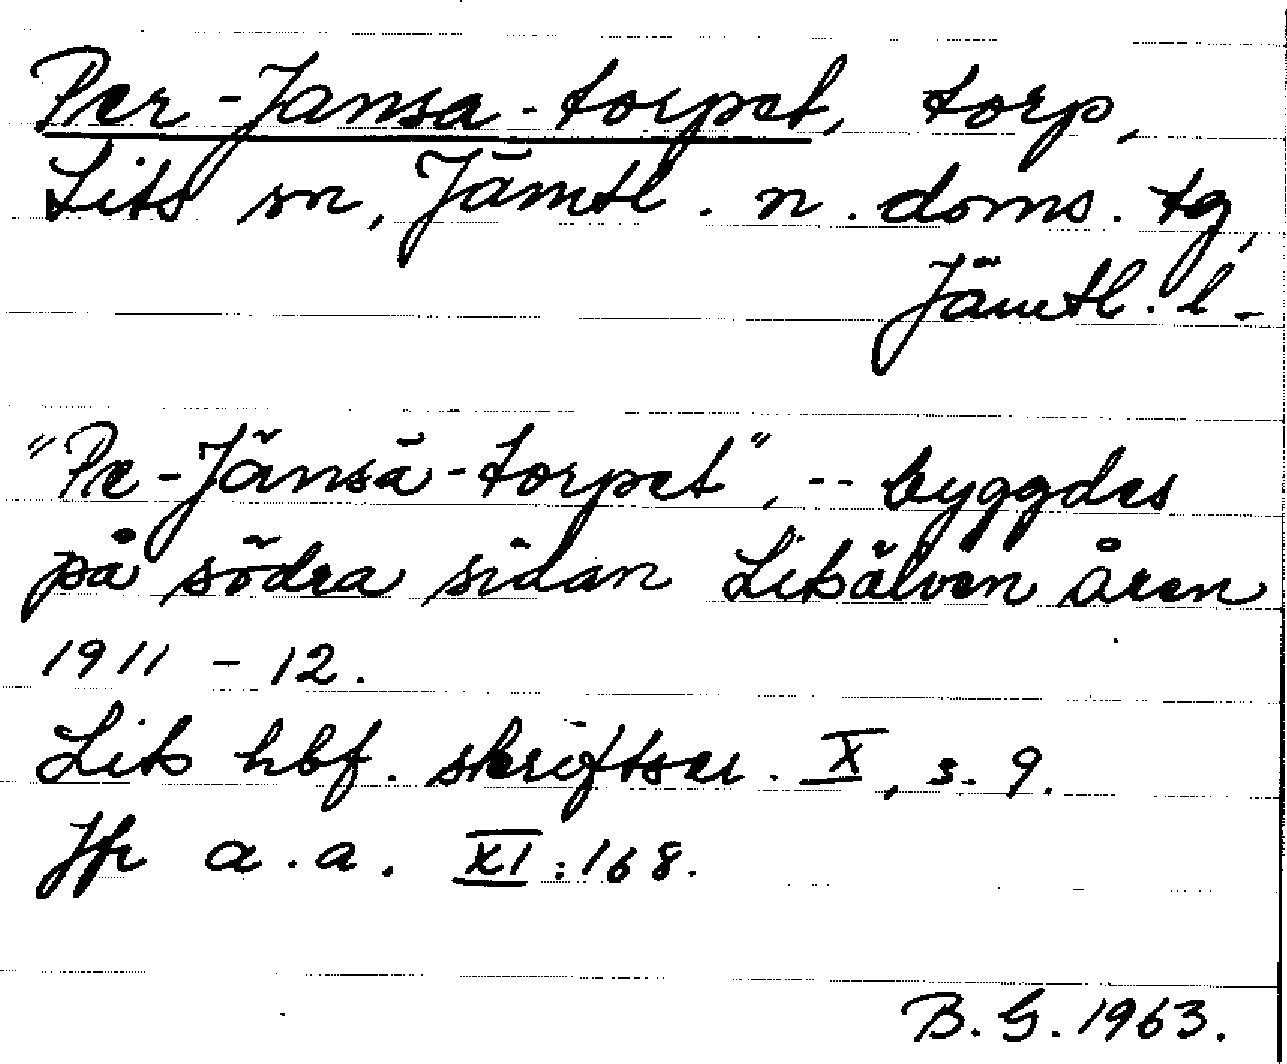 Per-Jansa-torpet, torp,
Lits sn, Jämtl. n. doms. tg,
Jämtl. l.
"Pe-Jänsä-torpet", -- byggdes
på södra sidan Litsälven åren
1911 - 12.
Lits hbf. skriftser. X, s. 9.
Jfr a.a. XI:168.
B. G. 1963.